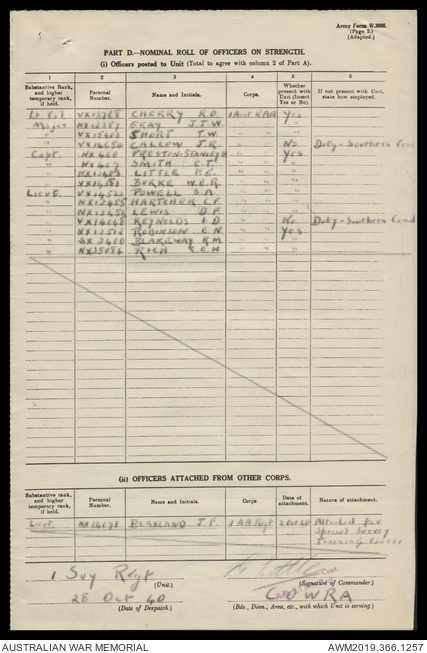 Army Form W.3008.
(Page 2.)
(Adapted.)
PART D.—NOMINAL ROLL OF OFFICERS ON STRENGTH.
(i) Officers posted to Unit (Total to agree with column 2 of Part A).
1 2 3 4 5 6
Substantive Rank, and higher temporary rank, if held. Personal Number. Name and Initials. Corps. Whether present with Unit (Insert Yes or No). If not present with Unit, state how employed.
Lt Col CHERRY R.D. Yes
Major GRAY J.T.W. " "
" SHORT T.W. " "
" VX14650 CALLOW J.R. " No Duty - Southern Comd
Capt. NX460 " Yes
" NX467 SMITH C.J. " "
" LITTLE " "
" BURKE W.E.R. " "
Lieut. POWELL S.A. " "
" NX12455 HARTCHER C.F. " "
" NX12454 LEWIS D.F. " "
" REYNOLDS No Duty - Southern Comd
" NX12512 ROBINSON E.N. Yes
" SX 3400 BLAKEWAY K.M. "
" NX35086 RICH "
(ii) OFFICERS ATTACHED FROM OTHER CORPS.
Substantive rank, and higher temporary rank, if held. Personal Number. Name and Initials. Corps Date of attachment. Nature of attachment.
Lieut. NX14671 BLAXLAND J.F. Attached for
Special Survey
Training Course
1 Svy Regt
(Unit.) (Signature of Commander.)
28 Oct 40 WRA
(Date of Despatch.) (Bde., Divn., Area, etc., with which Unit is serving.)
AUSTRALIAN WAR MEMORIAL AWM2019.366.1257